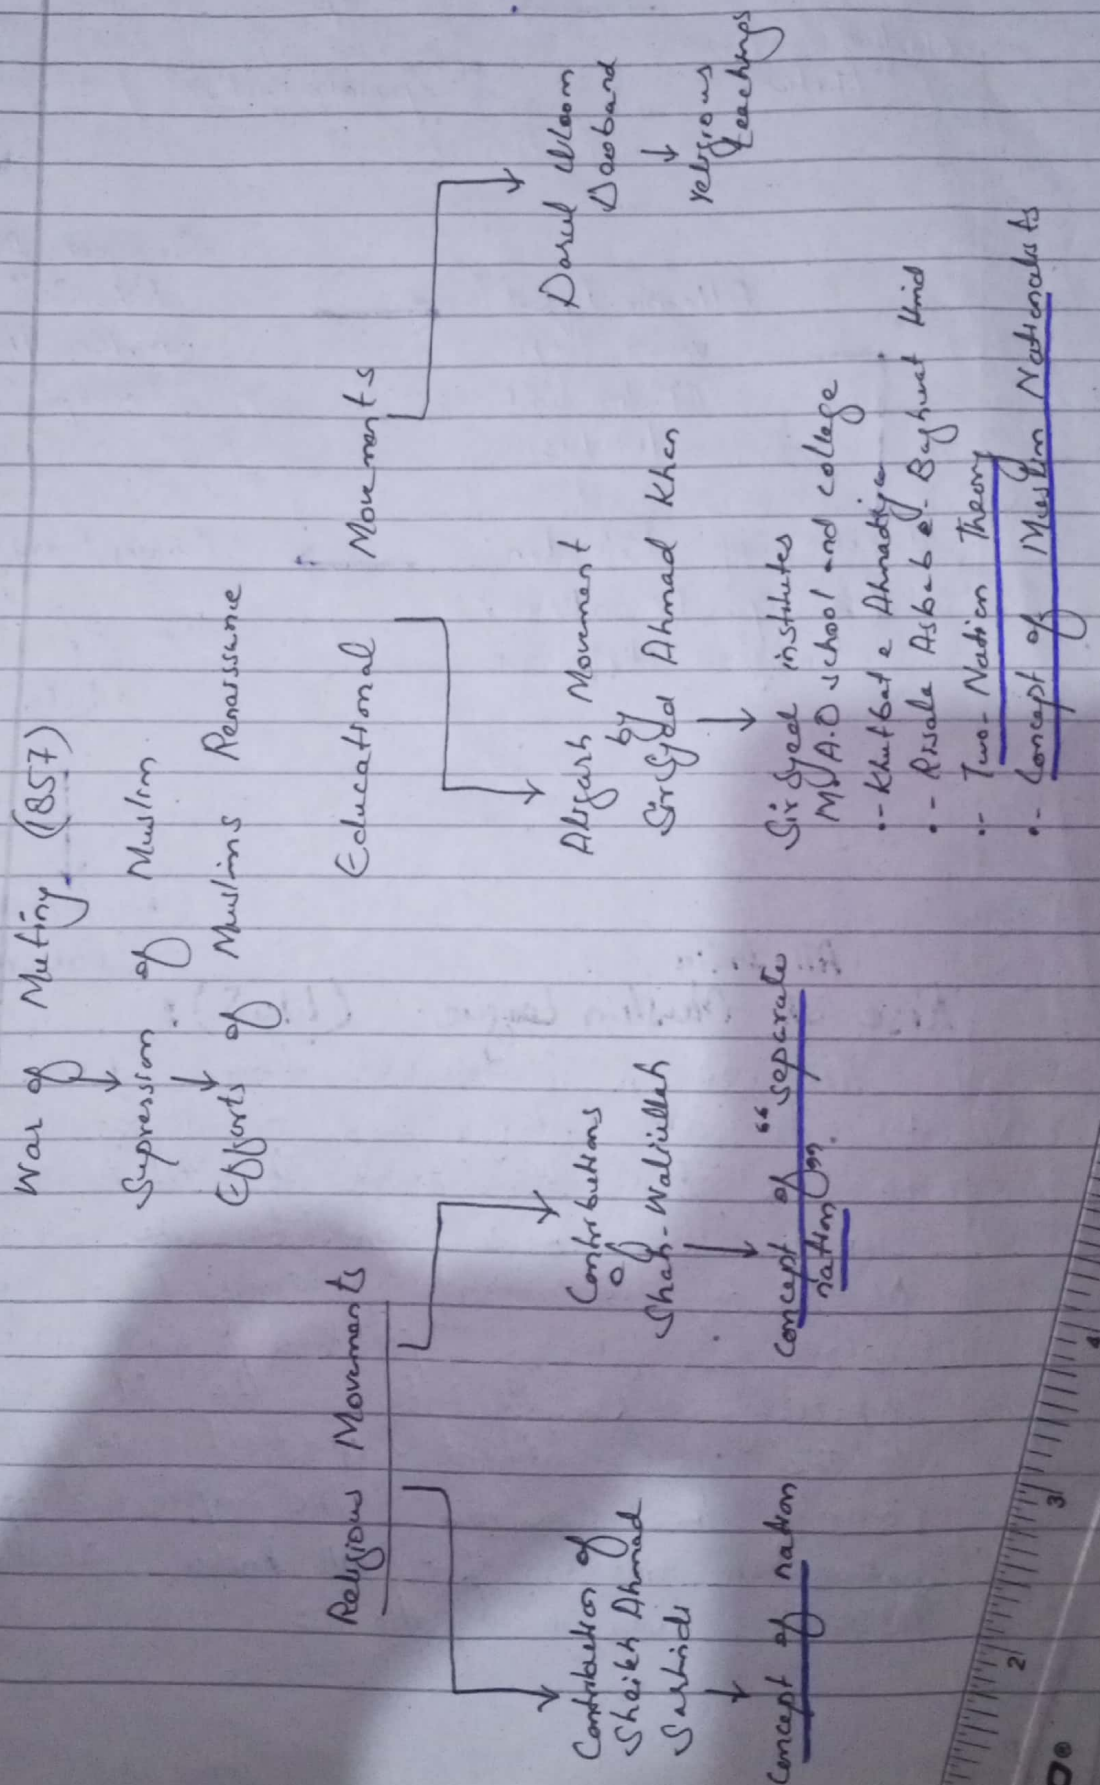 War of Mutiny (1857)
Supression of Muslim
Efforts of Muslims Renaissance
Religious Movements
Educational Movements
Contribution of
Sheikh Ahmad
Sarhindi
Concept of nation
Contributions
of
Shah-Waliullah
Concept of "separate
nation".
Aligarh Movement
by
Sir Syed Ahmad Khan
Sir Syed institutes
M.A.O school and college
Khutbat e Ahmadiya
Risala Asbab e-Baghwat Hind
Two-Nation Theory
Concept of Muslim Nationalists
Darul Uloom
Deoband
religious
teachings
2
3
4